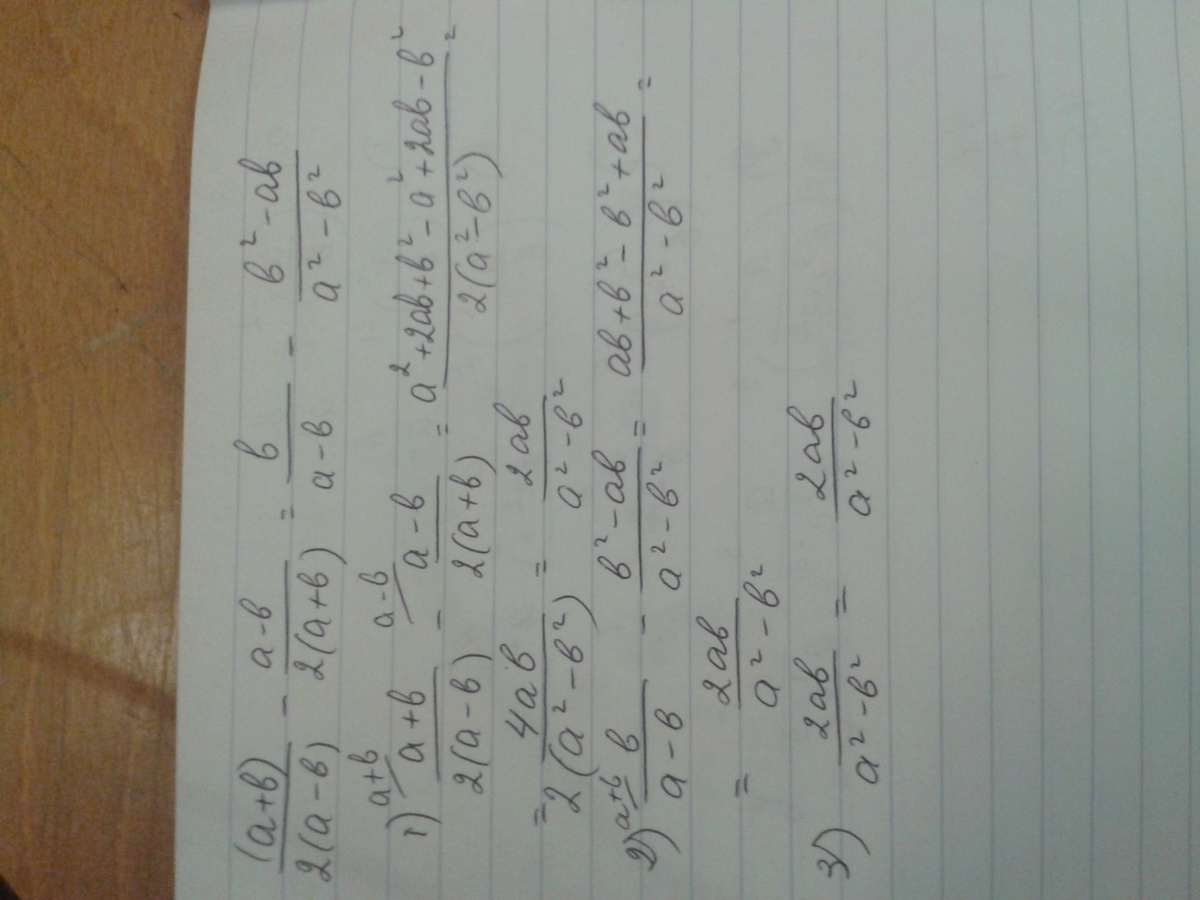 (a+b)/2(a-b) - a-b/2(a+b) = b/a-b - b²-ab/a²-b²
1) a+b/ a+b/2(a-b) - a-b/ a-b/2(a+b) = a²+2ab+b²-a²+2ab-b²/2(a²-b²) =
= 4ab/2(a²-b²) = 2ab/a²-b²
2) a+b/ b/a-b - b²-ab/a²-b² = ab+b²-b²+ab/a²-b² =
= 2ab/a²-b²
3) 2ab/a²-b² = 2ab/a²-b²